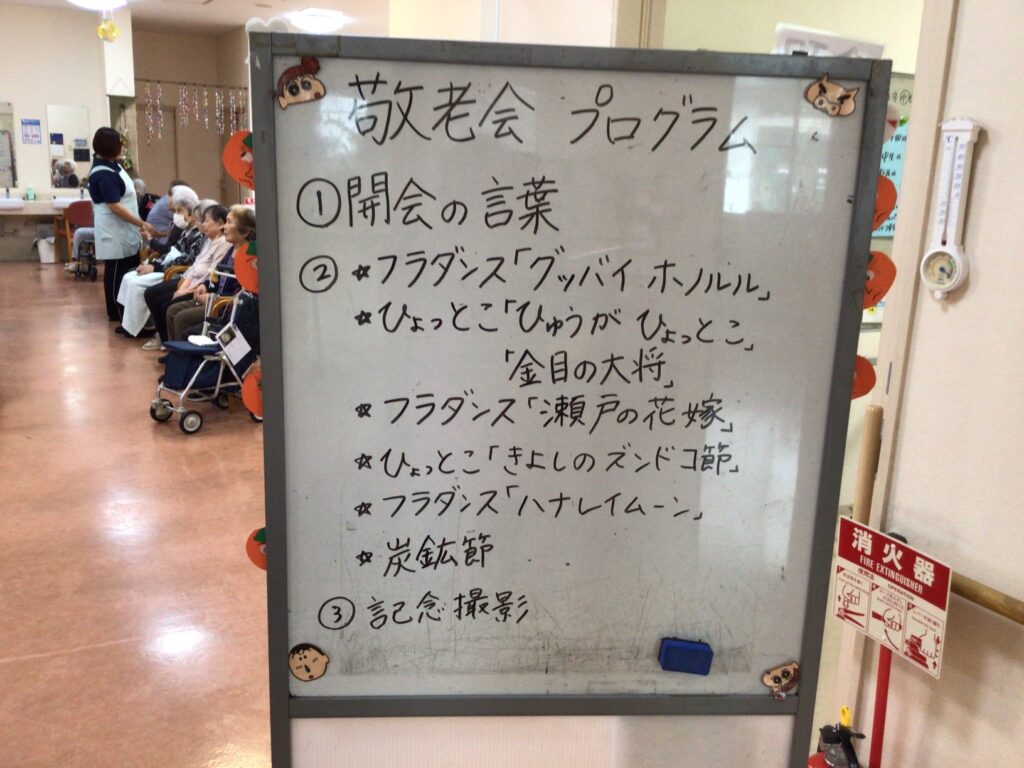 敬老会 プログラム
①開会の言葉
② ☆フラダンス「グッバイ ホノルル」
☆ひょっとこ「ひゅうが ひょっとこ」
「金目の大将」
☆フラダンス「瀬戸の花嫁」
☆ひょっとこ「きよしのズンドコ節」
☆フラダンス「ハナレイムーン」
☆炭鉱節
③ 記念撮影
消火器
FIRE EXTINGUISHER
使用法
OPERATION